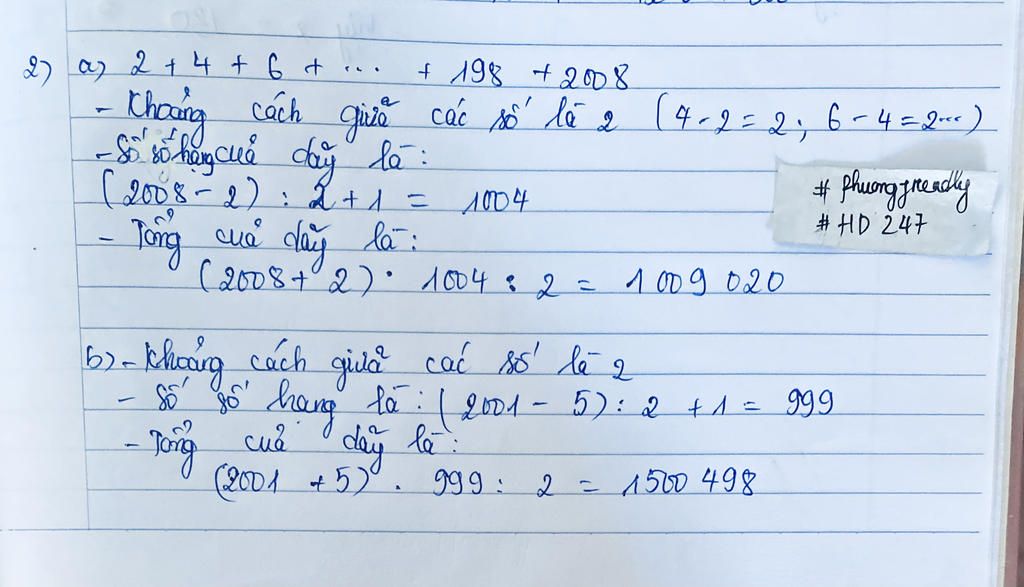 2) a) 2 + 4 + 6 + ... + 198 + 2008
- Khoảng cách giữa các số là 2 (4 - 2 = 2; 6 - 4 = 2...)
- Số số hạng của dãy là:
(2008 - 2) : 2 + 1 = 1004
# phuongfreadly
# HD 247
- Tổng của dãy là:
(2008 + 2) . 1004 : 2 = 1 009 020
b) - Khoảng cách giữa các số là 2
- Số số hạng là: (2001 - 5) : 2 + 1 = 999
- Tổng của dãy là:
(2001 + 5) . 999 : 2 = 1500 498